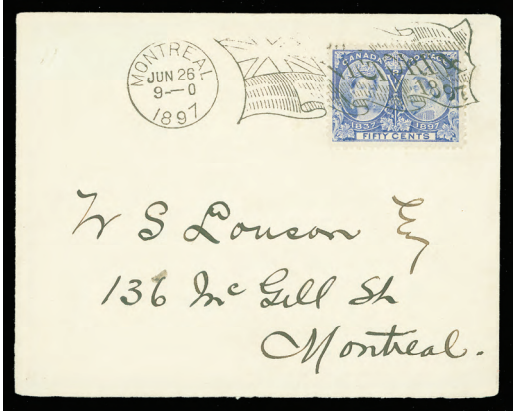 MONTREAL
JUN 26
9—0
1897
CANADA POSTAGE
1837 1897
FIFTY CENTS
W S Louson Esq
136 Mc Gill St
Montreal.